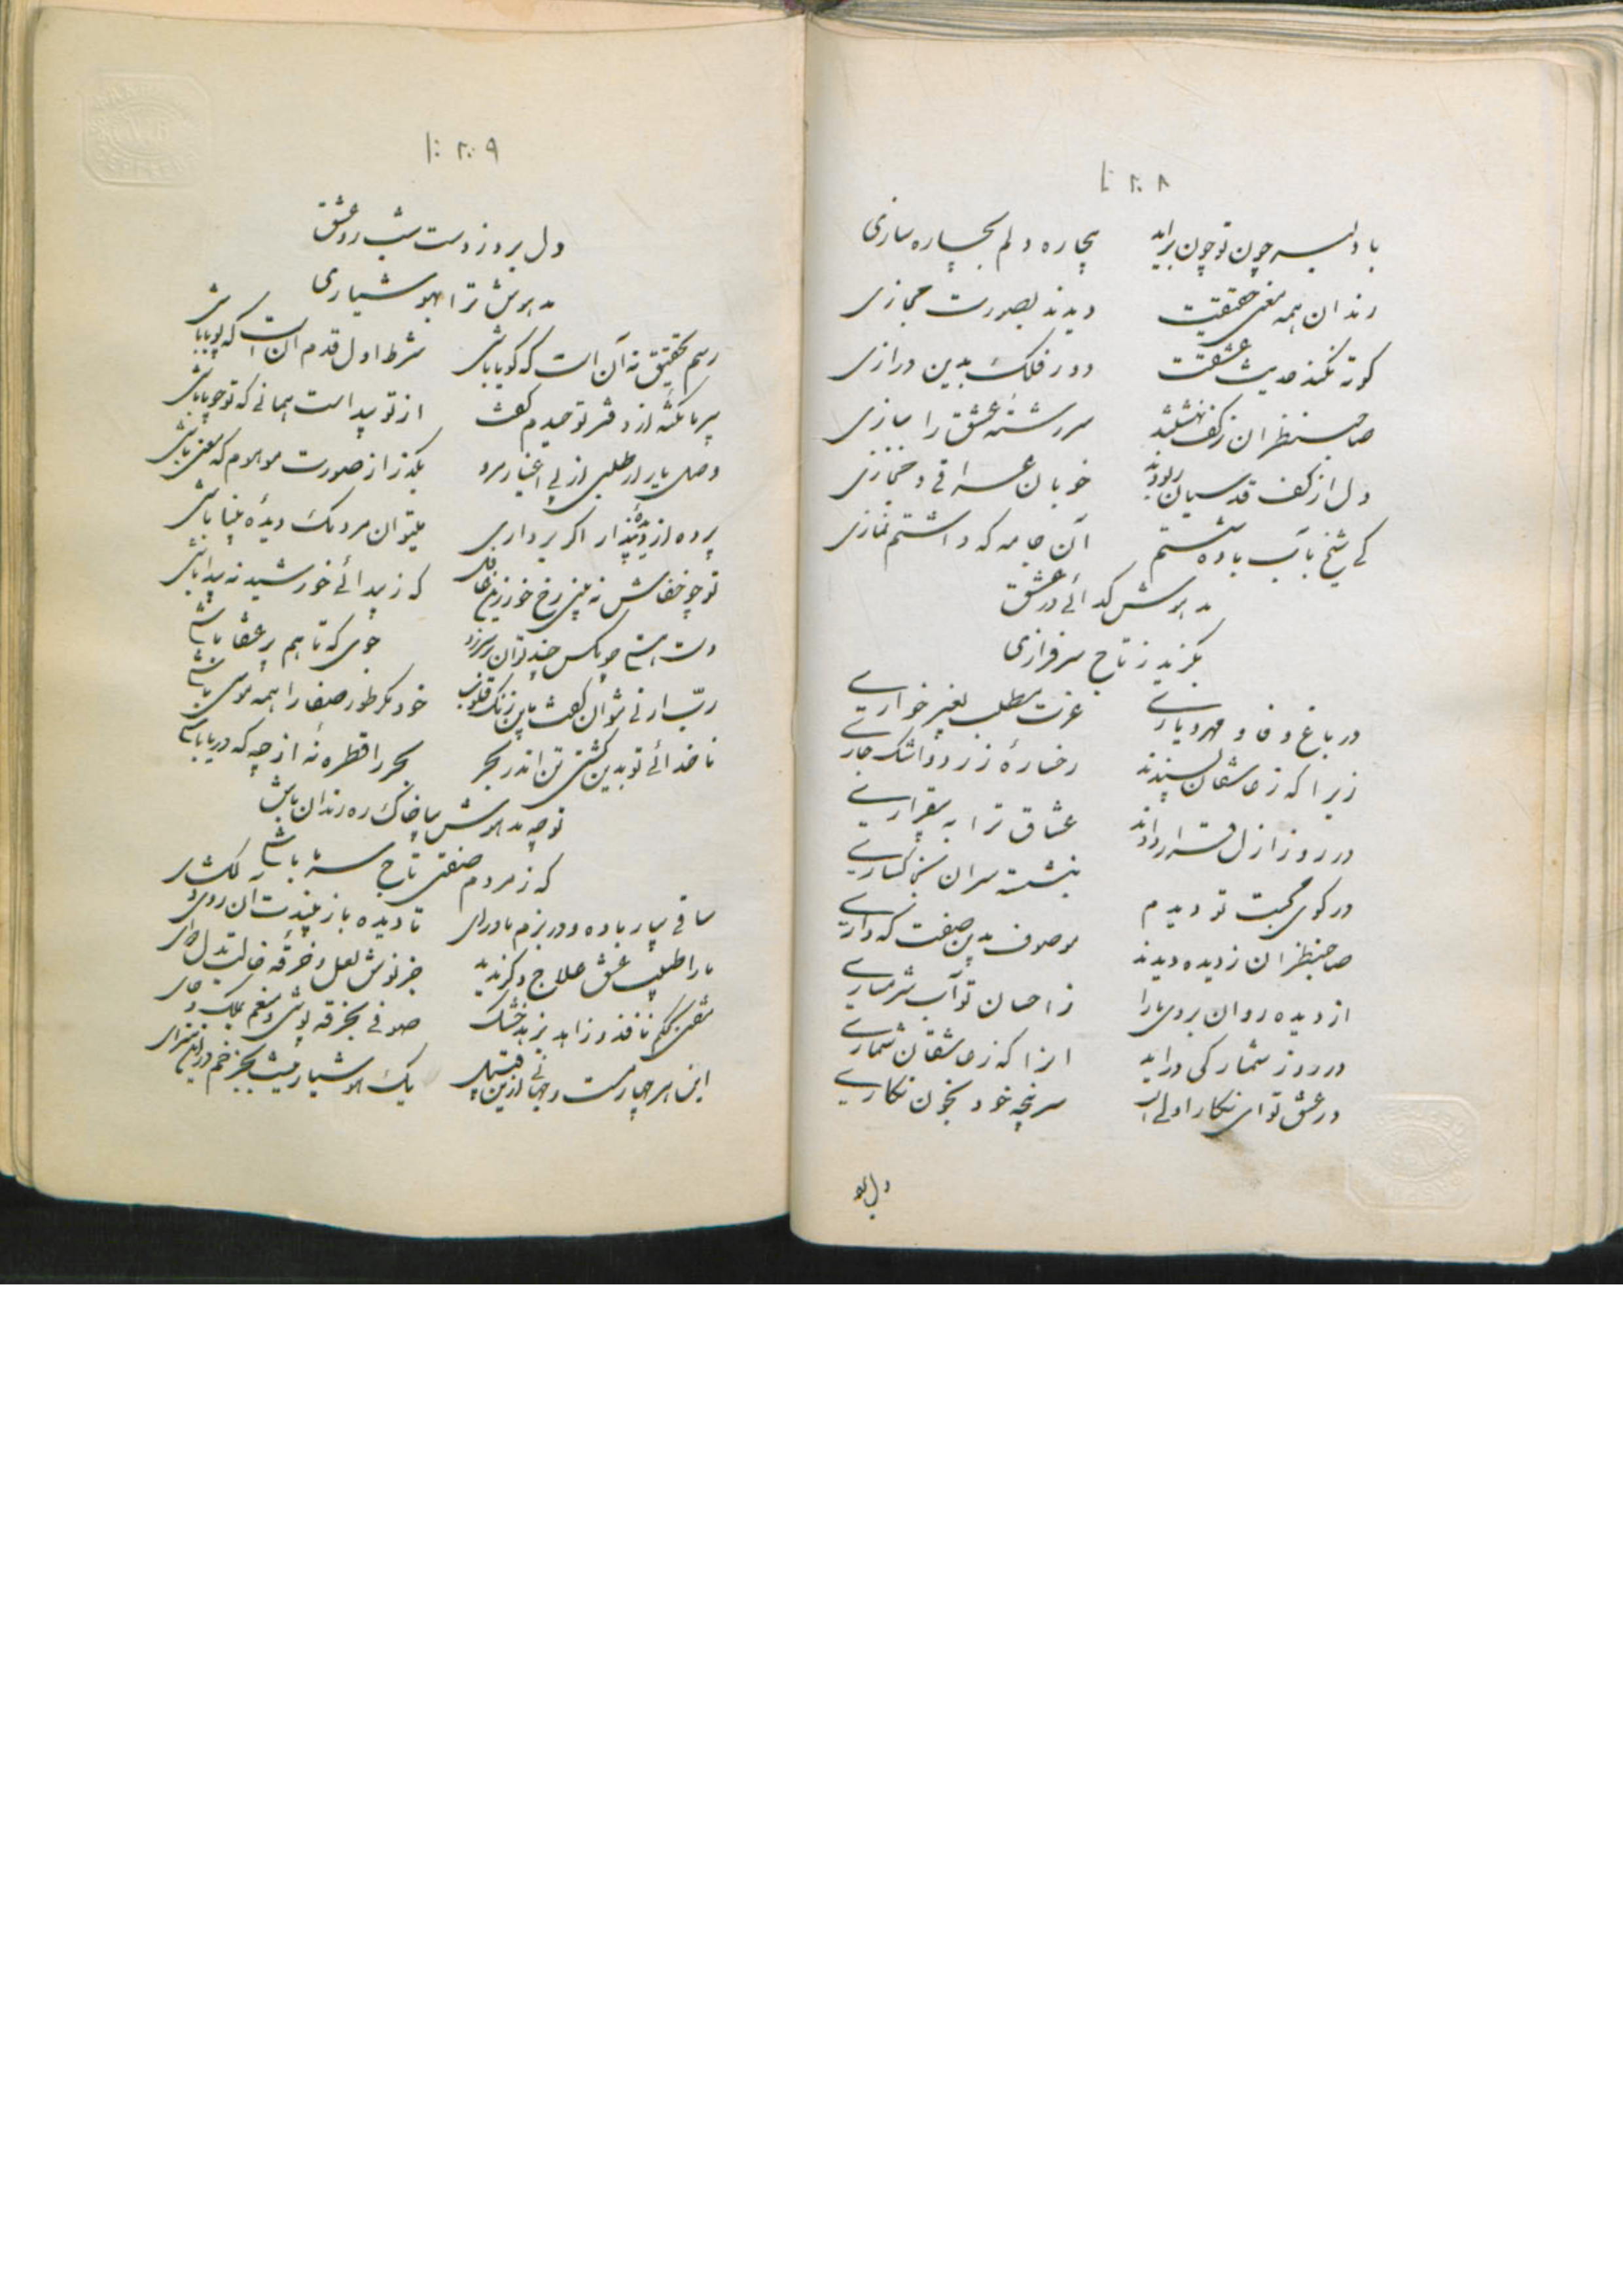 ۲۰۸
با دلبر چون تو چون برآید بیچاره دلم بچاره سازی
رندان همه معنی حقیقت دیدند بصورت مجازی
کوته نکند حدیث عشقت دور فلک بدین درازی
صاحبنظران ز کف نهشتند سررشته عشق را ببازی
دل از کف قدسیان ربودند خوبان عراقی و حجازی
کی شیخ بآب باده شستم آن جامه که داشتم نمازی
مدهوش گدائی در عشق
بگزید ز تاج سرفرازی
در باغ وفا و مهر و یاری عزت مطلب بغیر خواری
زیرا که ز عاشقان پسندند رخسارهٔ زرد و اشک جاری
در روز ازل قرار دادند عشاق ترا به بیقراری
در کوی محبت تو دیدم بنشسته سران بخاکساری
صاحبنظران ز دیده دیدند موصوف بدین صفت که داری
از دیده روان بروی ما را ز احسان تو آب شرمساری
در روز شمار کی درآید انرا که ز عاشقان شماری
در عشق تو ای نگار اولی سرپنجه خود بخون نگاری
دل برد
۲۰۹
دل برد ز دست شب رو عشق
مدهوش ترا بهوشیاری
رسم تحقیق نه آن است که گویا باشی شرط اول قدم آن است که پویا باشی
پیر ما نکته از دفتر توحیدم گفت از تو پیداست همانی که تو جویا باشی
وصل یار ار طلبی از پی اغیار مرو بگذر از صورت موهوم که معنی باشی
پرده از دیدهٔ پندار اگر برداری میتوان مردمک دیدهٔ بینا باشی
تو چو خفاش نه بینی رخ خور زین غافل که ز پیدائی خورشید نه پیدا باشی
دست هستی چو مگس چند توان بر سر زد جوی که تا هم پر عنقا باشی
رب ارنی نتوان گفت باین زنگ قلوب خود مگر طور صفا را همه موسی باشی
ناخدائی تو بدین کشتی تن اندر بحر بحر را قطره نهٔ از چه که دریا باشی
تو چه مدهوش بیا خاک ره رندان باش
که ز مردم صفتی تاج سر ما باشی
ساقی بیار باده و در بزم ما درای تا دیده باز بیندت آن روی دلگشای
ما را طبیب عشق علاج دگر ندید جز نوش لعل و خرقه خالت بدل دوای
مفتی بحکم نافذ و زاهد بزهد خشک صوفی بخرقه پوشی و منعم بملک و جای
این هر چهار مست و جهانی ازین قبیل یک هوشیار نیست بجز خم در این سرای